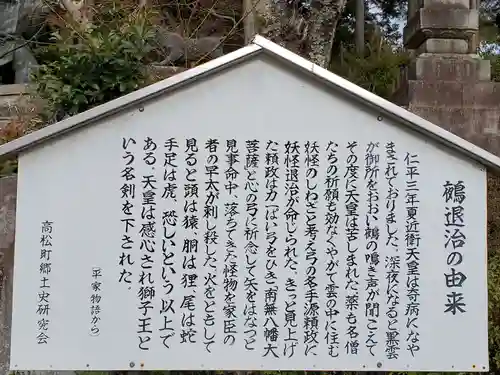 鵺退治の由来
仁平三年夏近衛天皇は奇病になや
まされておりました。深夜になると黒雲
が御所をおおい鵺の鳴き声が聞こえて
その度に天皇は苦しまれた。薬も名僧
たちの祈願も効なくやがて雲の中に住む
妖怪のしわざと考え弓の名手源頼政に
妖怪退治が命じられた。きっと見上げ
た頼政は力いっぱい弓をひき「南無八幡大
菩薩」と心の弓に祈念して矢をはなつと
見事命中、落ちてきた怪物を家臣の
者の早太が刺し殺した。火をともして
見ると頭は猿、胴は狸、尾は蛇
手足は虎、恐しいという以上で
ある。天皇は感心され獅子王と
いう名剣を下された。
(平家物語から)
高松町郷土史研究会